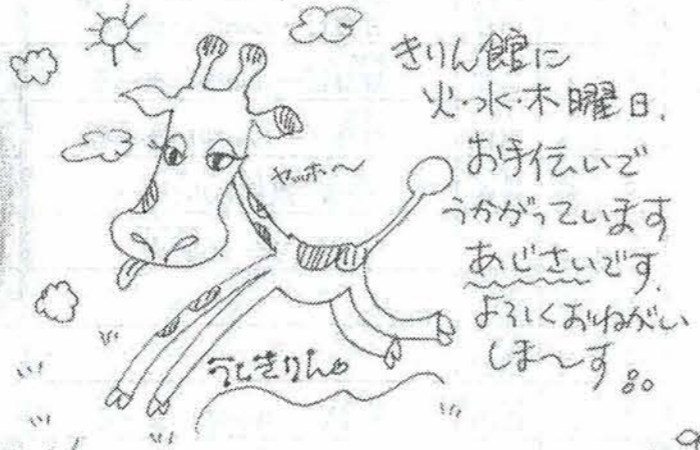 きりん館に
火・水・木曜日、
お手伝いで
うかがっています
あじさいです。
よろしくおねがい
しま〜す
ヤッホ〜